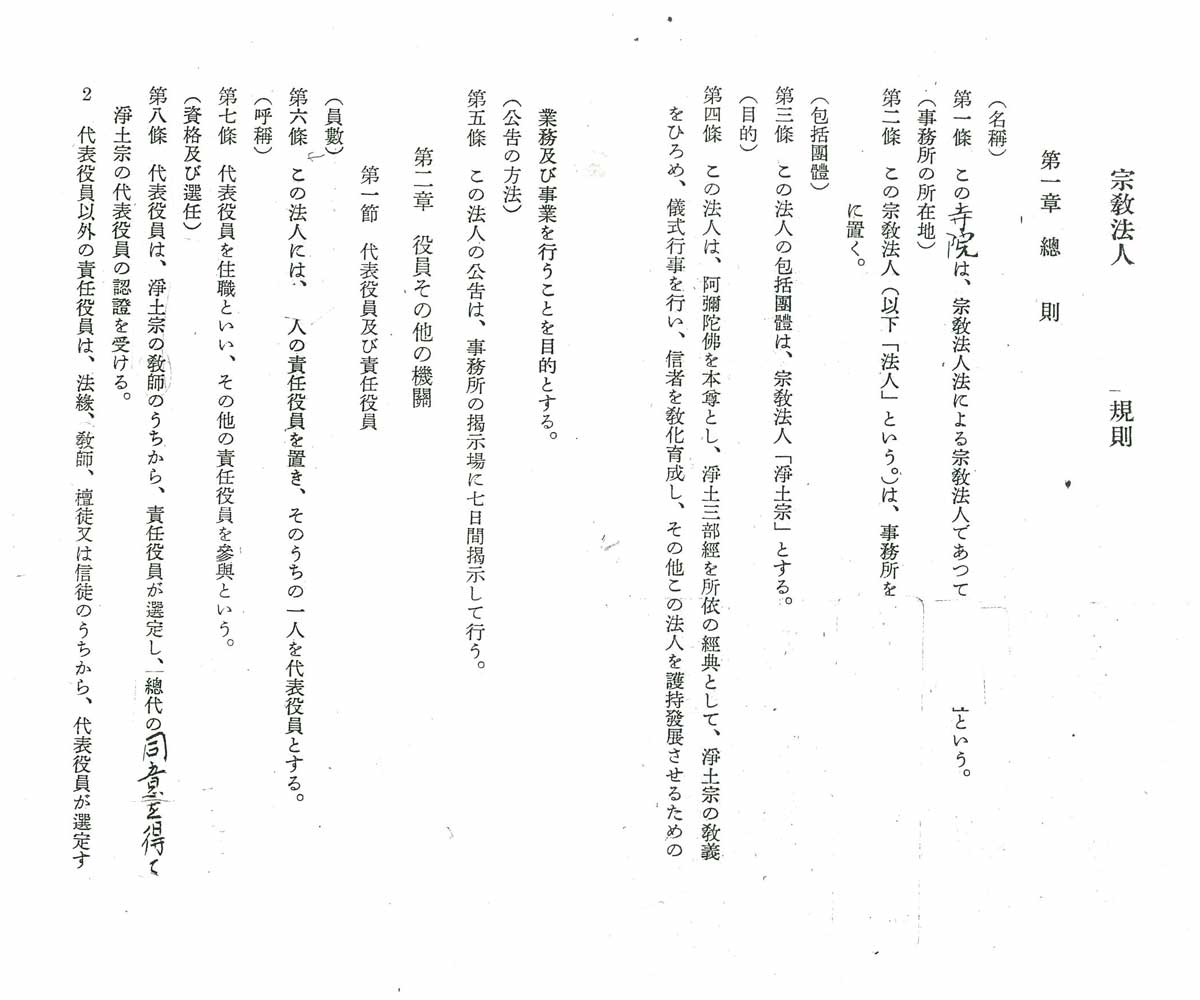 宗敎法人　規則
第一章　總　則
（名稱）
第一條　この寺院は、宗敎法人法による宗敎法人であつて　」という。
（事務所の所在地）
第二條　この宗敎法人（以下「法人」という。）は、事務所を
に置く。
（包括團體）
第三條　この法人の包括團體は、宗敎法人「淨土宗」とする。
（目的）
第四條　この法人は、阿彌陀佛を本尊とし、淨土三部經を所依の經典として、淨土宗の敎義
をひろめ、儀式行事を行い、信者を敎化育成し、その他この法人を護持發展させるための
業務及び事業を行うことを目的とする。
（公告の方法）
第五條　この法人の公告は、事務所の揭示場に七日間揭示して行う。
第二章　役員その他の機關
第一節　代表役員及び責任役員
（員數）
第六條　この法人には、　人の責任役員を置き、そのうちの一人を代表役員とする。
（呼稱）
第七條　代表役員を住職といい、その他の責任役員を參與という。
（資格及び選任）
第八條　代表役員は、淨土宗の敎師のうちから、責任役員が選定し、總代の同意を得て
淨土宗の代表役員の認證を受ける。
2　代表役員以外の責任役員は、法緣、敎師、檀徒又は信徒のうちから、代表役員が選定す